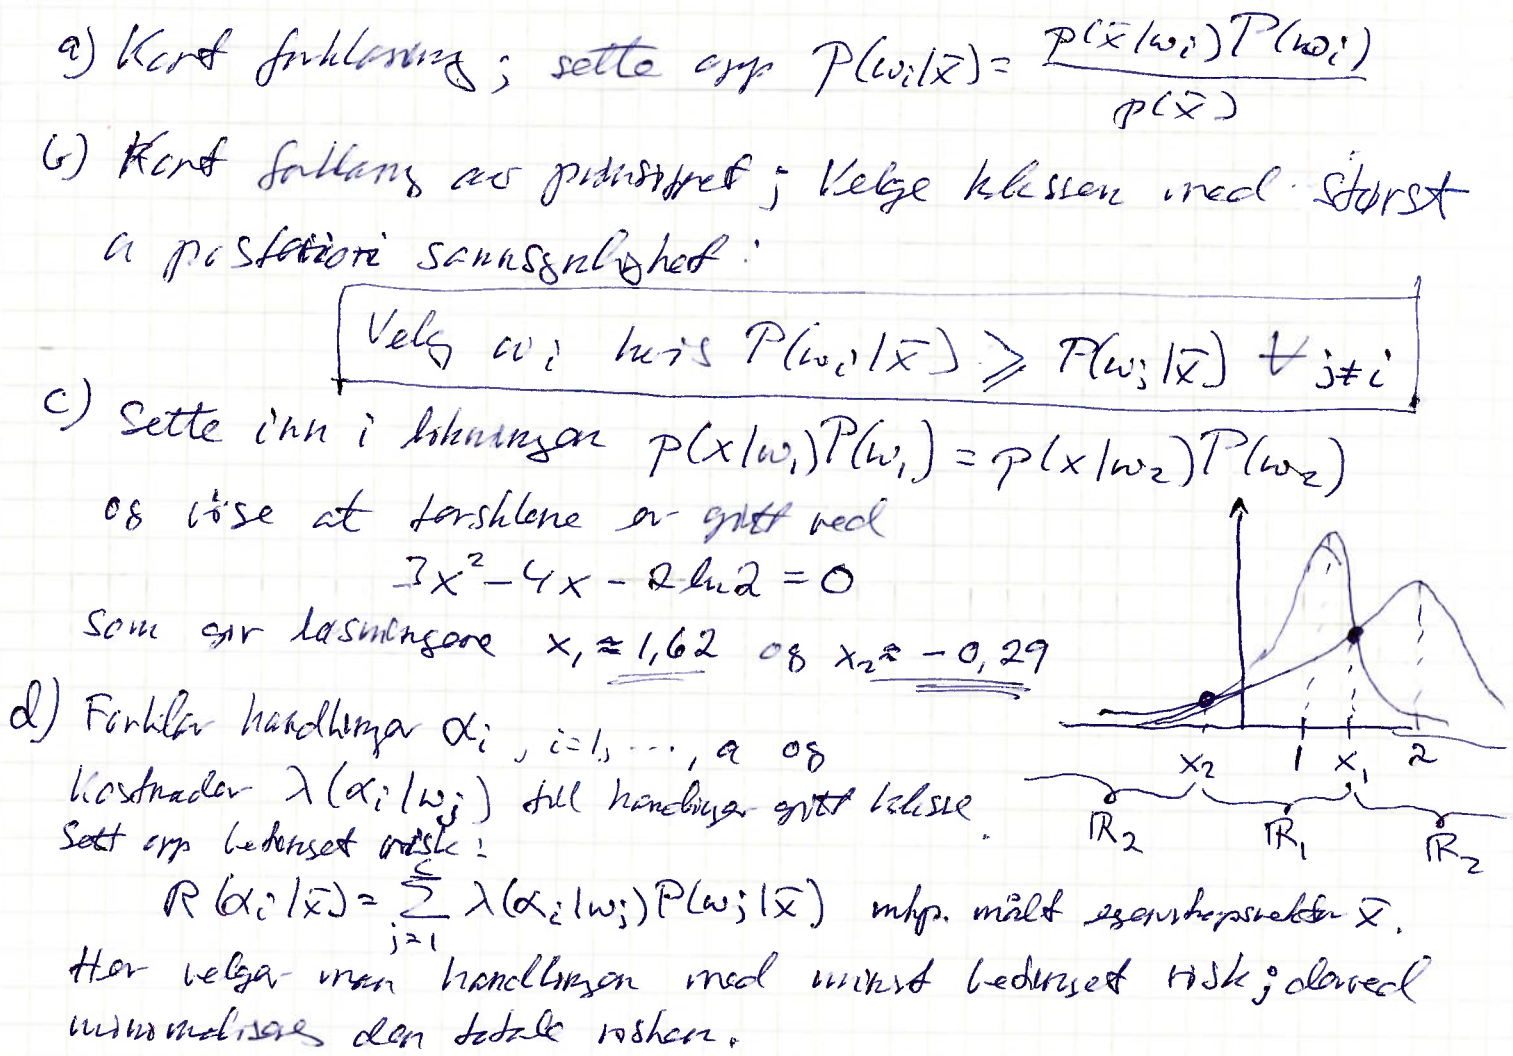 a) Kort forklaring; sette opp P(ωi|x̄) = p(x̄|ωi)P(ωi) / p(x̄)
b) Kort forklaring av prinsippet; Velge klassen med størst
a posteriori sannsynlighet:
Velg ωi hvis P(ωi|x̄) ⩾ P(ωj|x̄) ∀ j≠i
c) Sette inn i likningen p(x|ω1)P(ω1) = p(x|ω2)P(ω2)
og vise at tersklene er gitt ved
3x² - 4x - 2 ln 2 = 0
som gir løsningene x1 ≈ 1,62 og x2 ≈ -0,29
x2 1 x1 2
R2 R1 R2
d) Forklar handlinger αi, i=1, ..., a og
kostnader λ(αi|ωj) till handlinger gitt klasse.
Sett opp betinget risk:
R(αi|x̄) = Σ j=1 c λ(αi|ωj)P(ωj|x̄) mhp. målt egenskapsvektor x̄.
Her velger man handlingen med minst betinget risk; derved
minimaliseres den totale risken.